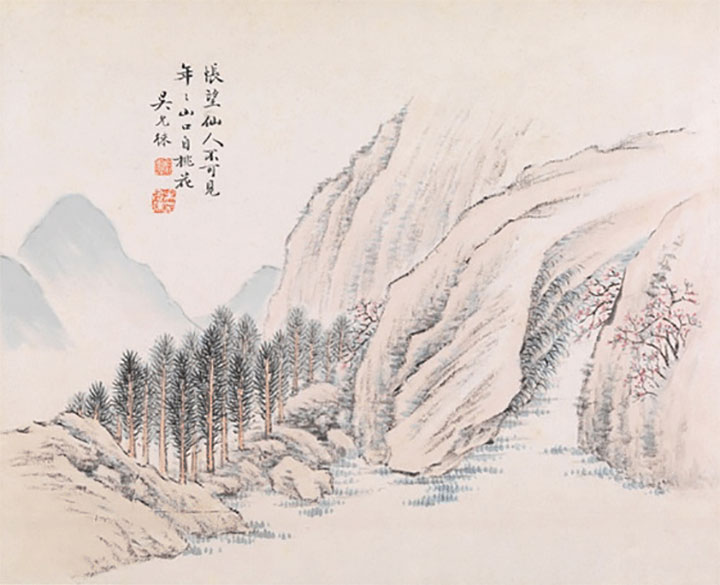 悵望仙人不可見
年〻山口自桃花
吴允楙